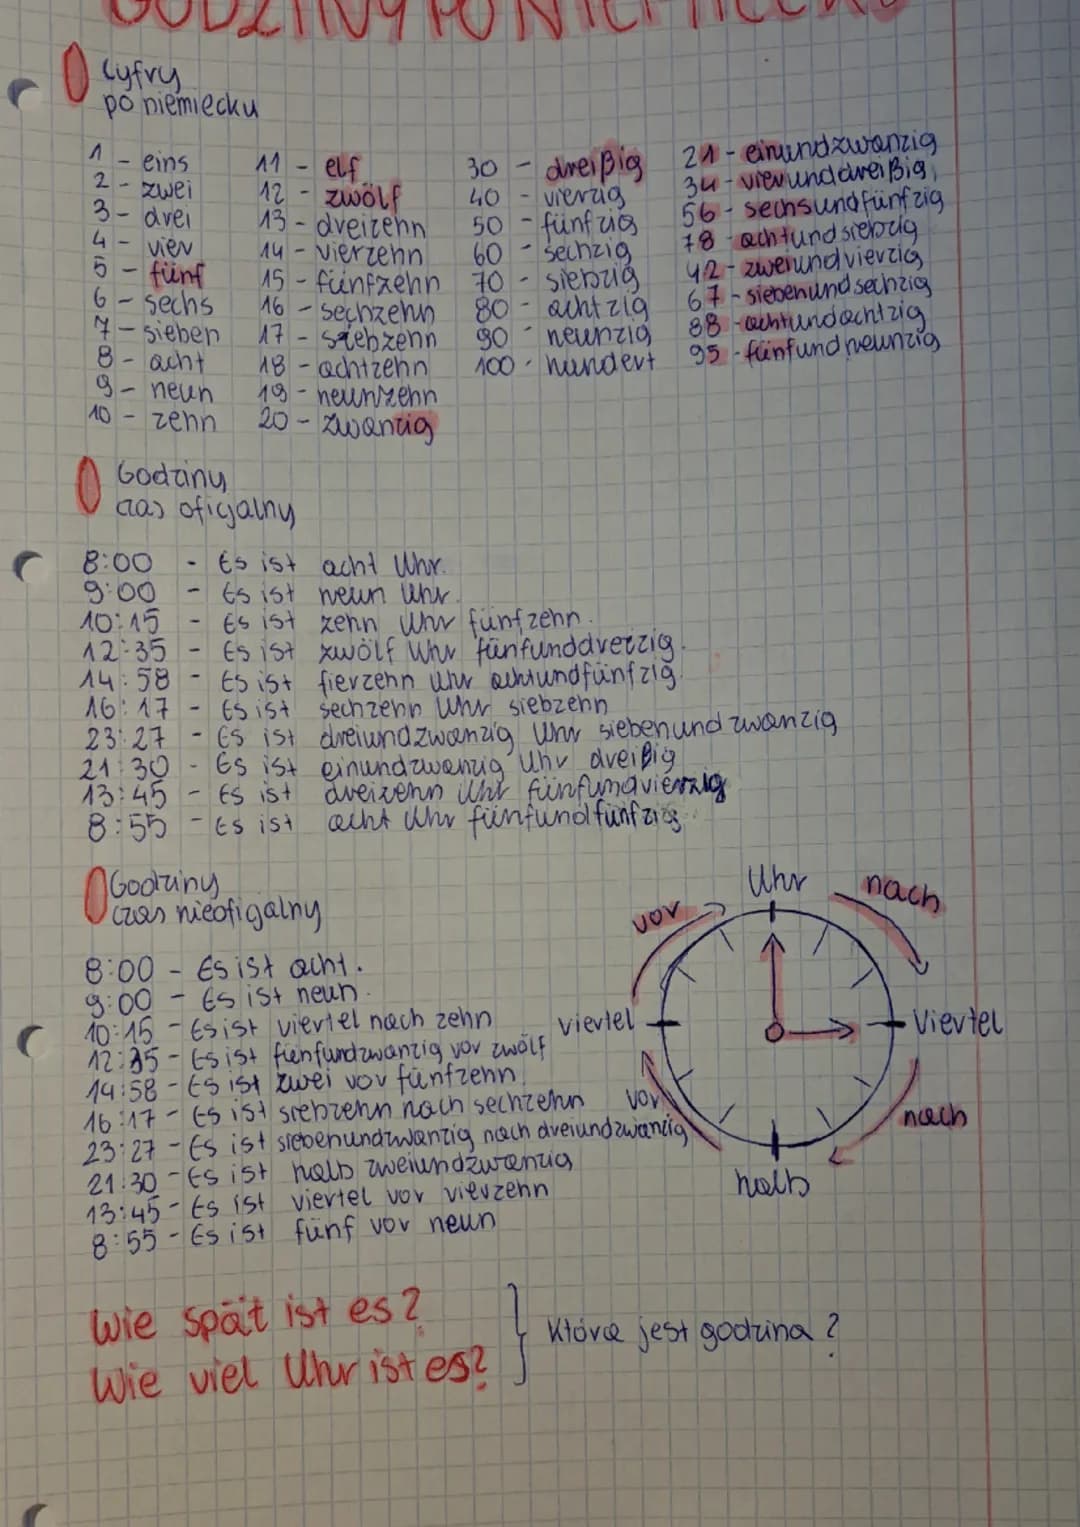 GODZINY PO NIEMIECKU
Cyfry
po niemiecku
1 - eins
2 - zwei
3 - drei
4 - vier
5 - fünf
6 - sechs
7 - sieben
8 - acht
9 - neun
10 - zehn
11 - elf
12 - zwölf
13 - dreizehn
14 - vierzehn
15 - fünfzehn
16 - sechzehn
17 - siebzehn
18 - achtzehn
19 - neunzehn
20 - zwanzig
30 - dreißig
40 - vierzig
50 - fünfzig
60 - sechzig
70 - siebzig
80 - achtzig
90 - neunzig
100 - hundert
21 - einundzwanzig
34 - vierunddreißig
56 - sechsundfünfzig
78 - achtundsiebzig
42 - zweiundvierzig
67 - siebenundsechzig
88 - achtundachtzig
95 - fünfundneunzig
Godziny
czas oficjalny
8:00 - Es ist acht Uhr.
9:00 - Es ist neun Uhr.
10:15 - Es ist zehn Uhr fünfzehn.
12:35 - Es ist zwölf Uhr fünfunddreizig.
14:58 - Es ist fierzehn Uhr achtundfünfzig.
16:17 - Es ist sechzehn Uhr siebzehn
23:27 - Es ist dreiundzwanzig Uhr siebenundzwanzig
21:30 - Es ist einundzwanzig Uhr dreißig
13:45 - Es ist dreizehn Uhr fünfundvierzig
8:55 - Es ist acht Uhr fünfundfünfzig
Godziny
czas nieoficjalny
8:00 - Es ist acht.
9:00 - Es ist neun.
10:15 - Es ist viertel nach zehn
12:35 - Es ist fünfundzwanzig vor zwölf
14:58 - Es ist zwei vor fünfzehn
16:17 - Es ist siebzehn nach sechzehn
23:27 - Es ist siebenundzwanzig nach dreiundzwanzig
21:30 - Es ist halb zweiundzwanzig
13:45 - Es ist viertel vor vierzehn
8:55 - Es ist fünf vor neun
Uhr
vor
nach
viertel
Viertel
vor
nach
halb
Wie spät ist es?
Wie viel Uhr ist es?
Która jest godzina?